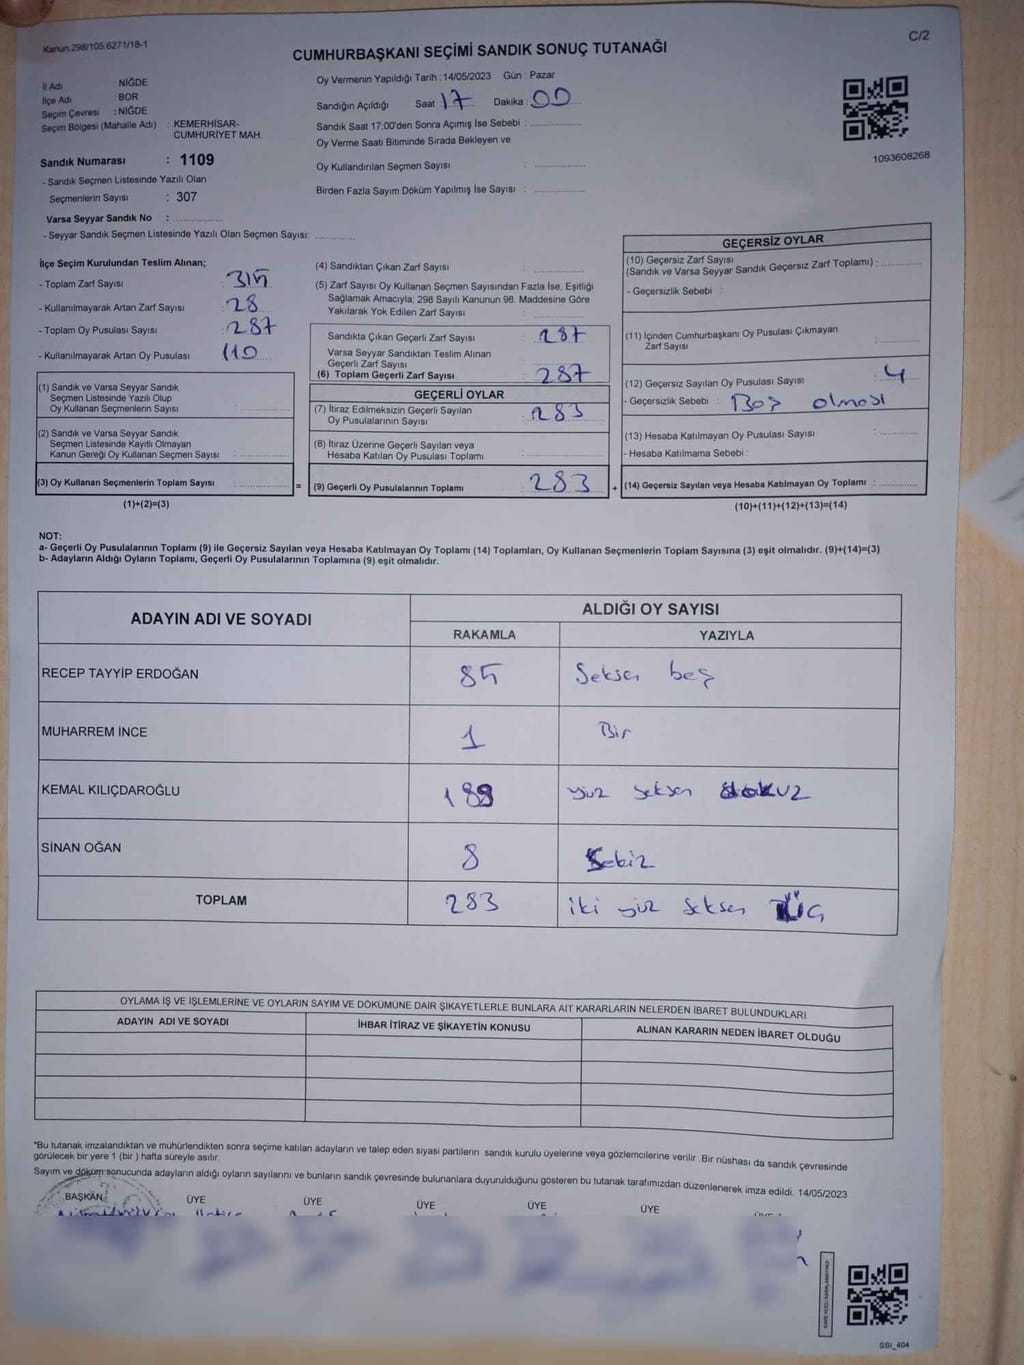 Kanun 298/105,6271/18-1
C/2
CUMHURBAŞKANI SEÇİMİ SANDIK SONUÇ TUTANAĞI
İl Adı : NİĞDE
İlçe Adı : BOR
Seçim Çevresi : NİĞDE
Seçim Bölgesi (Mahalle Adı) : KEMERHİSAR-
CUMHURİYET MAH.
Sandık Numarası : 1109
- Sandık Seçmen Listesinde Yazılı Olan
Seçmenlerin Sayısı : 307
Varsa Seyyar Sandık No :
- Seyyar Sandık Seçmen Listesinde Yazılı Olan Seçmen Sayısı:
Oy Vermenin Yapıldığı Tarih : 14/05/2023 Gün : Pazar
Sandığın Açıldığı Saat 17 Dakika : 00
Sandık Saat 17:00'den Sonra Açımış İse Sebebi :
Oy Verme Saati Bitiminde Sırada Bekleyen ve
Oy Kullandırılan Seçmen Sayısı :
Birden Fazla Sayım Döküm Yapılmış İse Sayısı :
1093608268
İlçe Seçim Kurulundan Teslim Alınan;
- Toplam Zarf Sayısı : 315
- Kullanılmayarak Artan Zarf Sayısı : 28
- Toplam Oy Pusulası Sayısı : 287
- Kullanılmayarak Artan Oy Pusulası 110
(1) Sandık ve Varsa Seyyar Sandık
Seçmen Listesinde Yazılı Olup
Oy Kullanan Seçmenlerin Sayısı :
(2) Sandık ve Varsa Seyyar Sandık
Seçmen Listesinde Kayıtlı Olmayan
Kanun Gereği Oy Kullanan Seçmen Sayısı :
(3) Oy Kullanan Seçmenlerin Toplam Sayısı : =
(1)+(2)=(3)
(4) Sandıktan Çıkan Zarf Sayısı :
(5) Zarf Sayısı Oy Kullanan Seçmen Sayısından Fazla İse, Eşitliği
Sağlamak Amacıyla; 298 Sayılı Kanunun 98. Maddesine Göre
Yakılarak Yok Edilen Zarf Sayısı :
Sandıkta Çıkan Geçerli Zarf Sayısı : 287
Varsa Seyyar Sandıktan Teslim Alınan
Geçerli Zarf Sayısı
(6) Toplam Geçerli Zarf Sayısı : 287
GEÇERLİ OYLAR
(7) İtiraz Edilmeksizin Geçerli Sayılan
Oy Pusulalarının Sayısı : 283
(8) İtiraz Üzerine Geçerli Sayılan veya
Hesaba Katılan Oy Pusulası Toplamı :
(9) Geçerli Oy Pusulalarının Toplamı : 283 +
GEÇERSİZ OYLAR
(10) Geçersiz Zarf Sayısı
(Sandık ve Varsa Seyyar Sandık Geçersiz Zarf Toplamı) :
- Geçersizlik Sebebi :
(11) İçinden Cumhurbaşkanı Oy Pusulası Çıkmayan
Zarf Sayısı :
(12) Geçersiz Sayılan Oy Pusulası Sayısı : 4
- Geçersizlik Sebebi : Boş olması
(13) Hesaba Katılmayan Oy Pusulası Sayısı :
- Hesaba Katılmama Sebebi :
(14) Geçersiz Sayılan veya Hesaba Katılmayan Oy Toplamı :
(10)+(11)+(12)+(13)=(14)
NOT:
a- Geçerli Oy Pusulalarının Toplamı (9) ile Geçersiz Sayılan veya Hesaba Katılmayan Oy Toplamı (14) Toplamları, Oy Kullanan Seçmenlerin Toplam Sayısına (3) eşit olmalıdır. (9)+(14)=(3)
b- Adayların Aldığı Oyların Toplamı, Geçerli Oy Pusulalarının Toplamına (9) eşit olmalıdır.
ADAYIN ADI VE SOYADI
ALDIĞI OY SAYISI
RAKAMLA YAZIYLA
RECEP TAYYİP ERDOĞAN 85 Seksen beş
MUHARREM İNCE 1 Bir
KEMAL KILIÇDAROĞLU 189 yüz seksen dokuz
SİNAN OĞAN 8 Sekiz
TOPLAM 283 iki yüz seksen Üç
OYLAMA İŞ VE İŞLEMLERİNE VE OYLARIN SAYIM VE DÖKÜMÜNE DAİR ŞİKAYETLERLE BUNLARA AİT KARARLARIN NELERDEN İBARET BULUNDUKLARI
ADAYIN ADI VE SOYADI İHBAR İTİRAZ VE ŞİKAYETİN KONUSU ALINAN KARARIN NEDEN İBARET OLDUĞU
*Bu tutanak imzalandıktan ve mühürlendikten sonra seçime katılan adayların ve talep eden siyasi partilerin sandık kurulu üyelerine veya gözlemcilerine verilir .Bir nüshası da sandık çevresinde
görülecek bir yere 1 (bir ) hafta süreyle asılır.
Sayım ve döküm sonucunda adayların aldığı oyların sayılarını ve bunların sandık çevresinde bulunanlara duyurulduğunu gösteren bu tutanak tarafımızdan düzenlenerek imza edildi. 14/05/2023
BAŞKAN ÜYE ÜYE ÜYE ÜYE ÜYE ÜYE
SSI_404